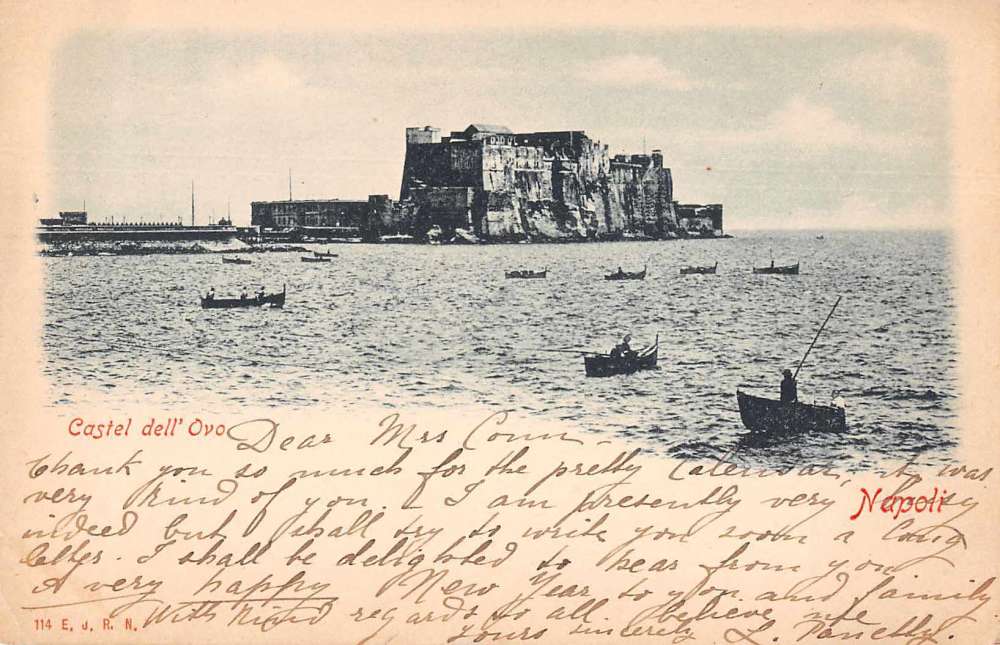 Castel dell' Ovo
Dear Mrs Conn -
Thank you so much for the pretty Calendar, it was
very kind of you. I am presently very busy
Napoli
indeed but I shall try to write you soon a long
letter. I shall be delighted to hear from you
A very happy New Year to you and family
With kind regards to all. believe me
114 E. J. R. N.
Yours sincerely L.